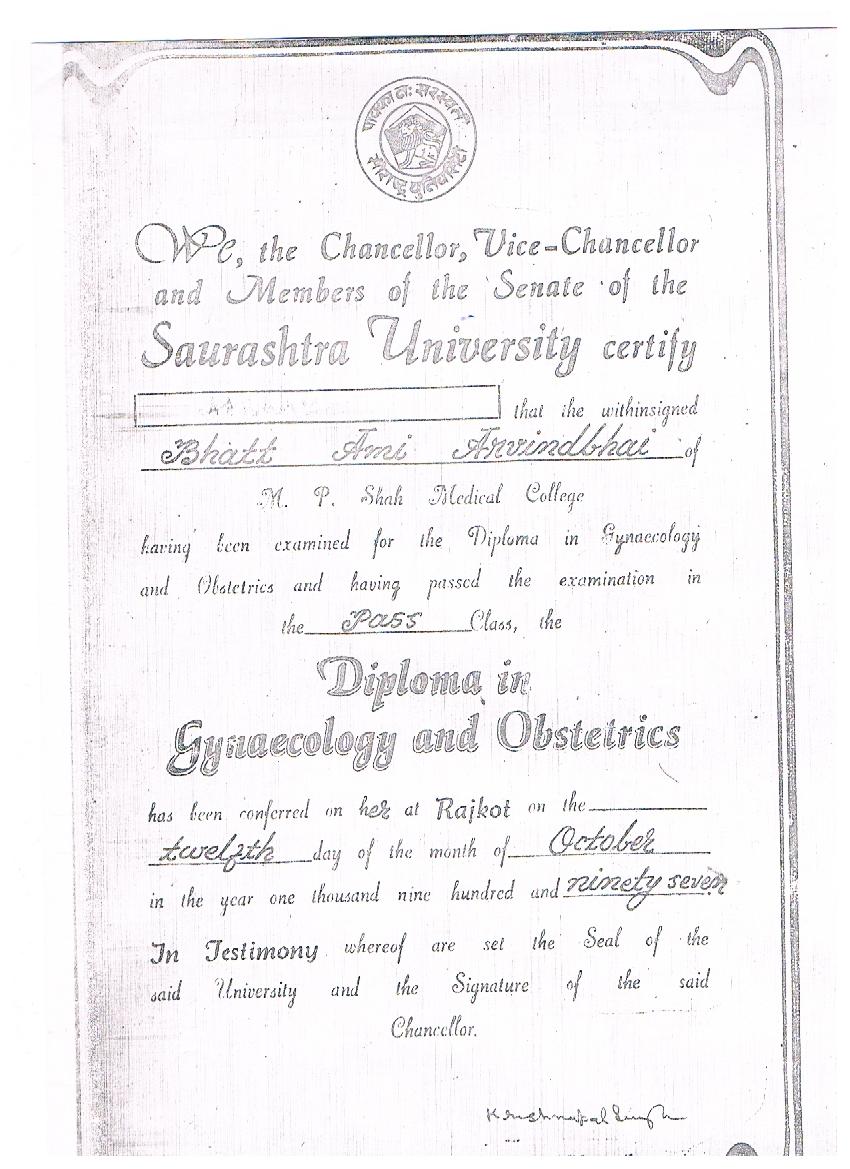 पावका नः सरस्वती
सौराष्ट्र युनिवर्सिटी
We, the Chancellor, Vice-Chancellor
and Members of the Senate of the
Saurashtra University certify
that the withinsigned
Bhatt Ami Arvindbhai of
M. P. Shah Medical College
having been examined for the Diploma in Gynaecology
and Obstetrics and having passed the examination in
the Pass Class, the
Diploma in
Gynaecology and Obstetrics
has been conferred on her at Rajkot on the
twelfth day of the month of October
in the year one thousand nine hundred and ninety seven
In Testimony whereof are set the Seal of the
said University and the Signature of the said
Chancellor.
Krushnapal Singh